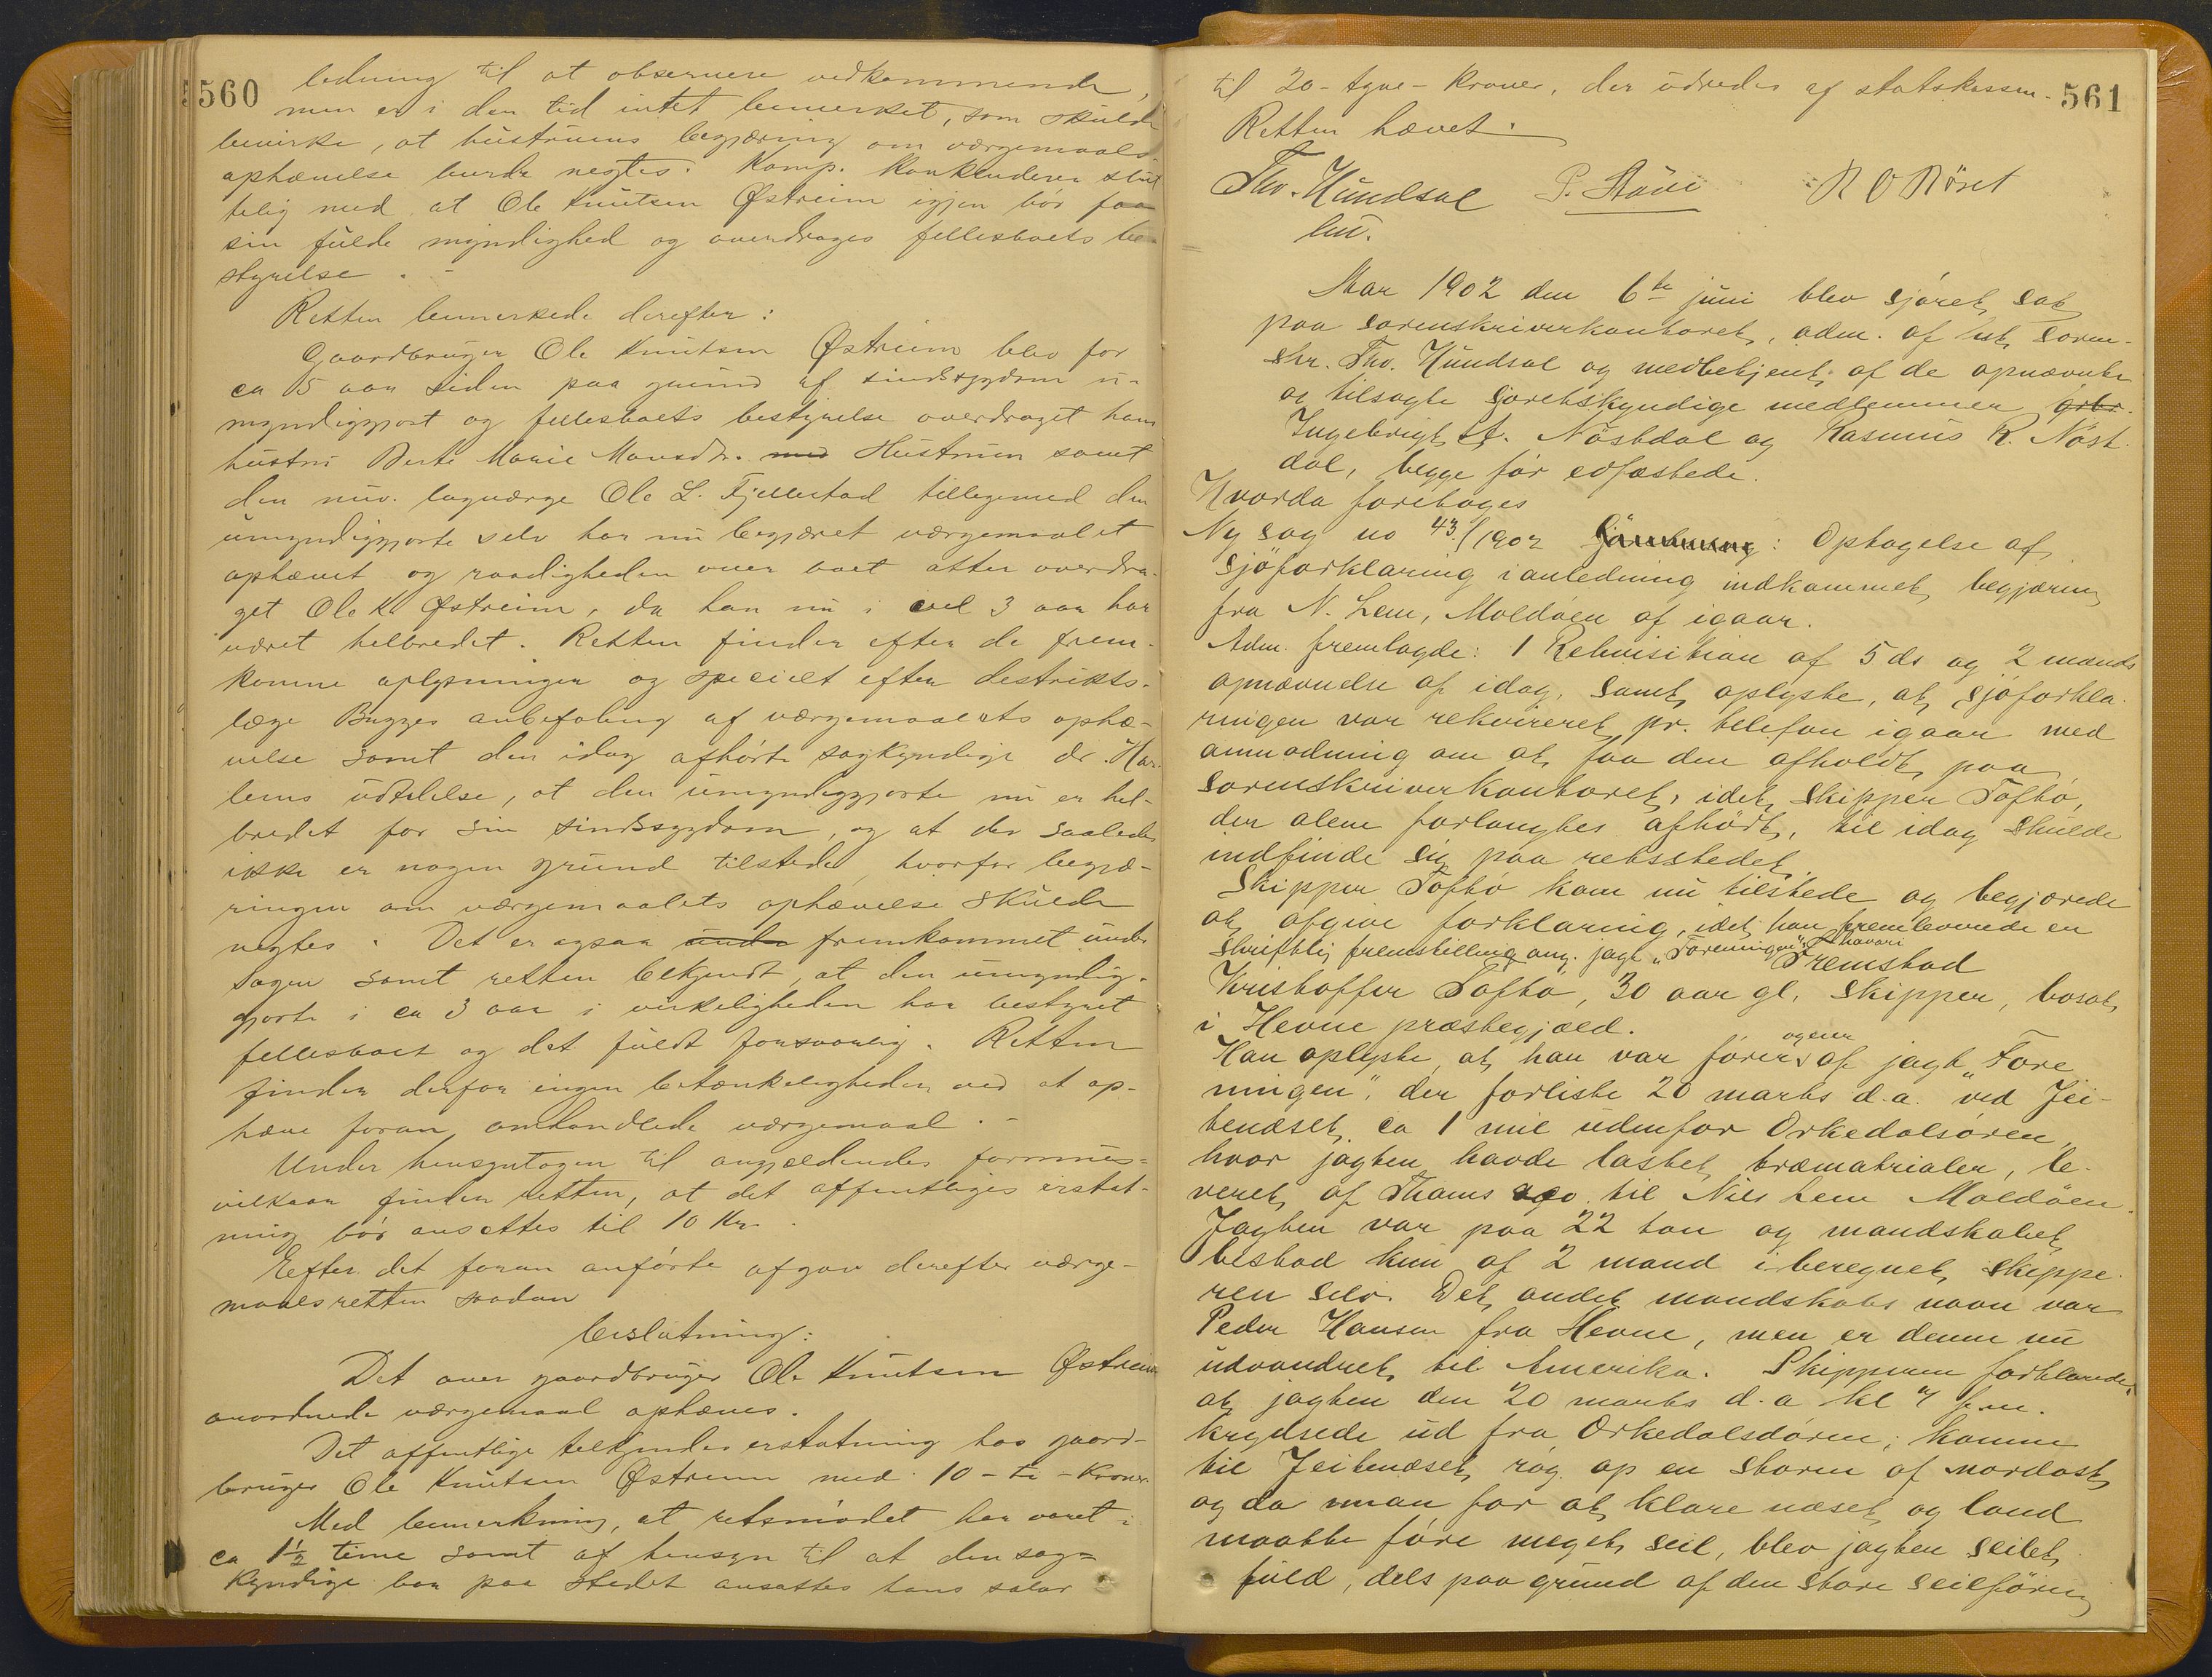 560
ledning til at observere vedkommende,
men er i den tid intet bemerket, som skulde
bevirke, at hustruens begjæring om værgemaals-
ophævelse burde negtes. Komp. konkluderer slut
telig med at Ole Knutsen Østreim igjen bör faa
sin fulde myndighed og overdrages fellesboets be-
styrelse.
Retten bemerkede derefter:
Gaardbruger Ole Knutsen Østreim blev for
ca 15 aar siden paa grund af sindssygdom u-
myndiggjort og fellesboets bestyrelse overdraget hans
hustru Berte Marie Monsdtr. med Hustruen samt
den nuv. lagværge Ole L. Fjellestad tilligemed den
umyndiggjorte selv har nu begjæret værgemaalet
ophævet og raadigheden over boet atter overdra-
get Ole K. Østreim, da han nu i vel 3 aar har
været helbredet. Retten finder efter de frem-
komne oplysninger og specielt efter destrikts-
læge Bugges anbefaling af værgemaalets ophæ-
velse samt den idag afhörte sagkyndige dr. Har-
lems udtalelse, at den umyndiggjorte nu er hel-
bredet for sin sindssygdom, og at der saaledes
ikke er nogen grund tilstede, hvorfor begjæ-
ringen om værgemaalets ophævelse skulde
negtes. Det er ogsaa under fremkommet under
sagen samt retten bekjendt, at den umyndig-
gjorte i ca 3 aar i virkeligheden har bestyret
fellesboet og det fuldt forsvarlig. Retten
finder derfor ingen betænkeligheder ved at op-
hæve foran omhandlede værgemaal.
Under hensyntagen til angjældendes formues-
vilkaar finder retten, at det offentliges erstat-
ning bör ansættes til 10 Kr.
Eefter det foran anförte afgav derefter værge-
maalsretten saadan
beslutning:
Det over gaardbruger Ole Knutsen Østreim
anordnede værgemaal ophæves.
Det offentlige tilkjendes erstatning hos gaard-
bruger Ole Knutsen Østreim med 10 - ti - Kroner.
Med bemerkning, at retsmödet har varet i
ca 1½ time samt af hensyn til at den sag-
kyndige bor paa stedet ansattes hans salær
561
til 20 - tyve - Kroner, der udredes af statskassen.
Retten hævet.
Tho. Hundsal P. Stöve R O Röset
Mar 1902 den 6te juni blev sjöret sat
paa sorenskriverkontoret, adm. af sorens-
skr. Tho. Hundsal og medbetjent af de opnævnte
og tilsagte söretskyndige medlemmer gbr.
Ingebrigt A. Nöstdal og Rasmus R. Nöst
dal, begge för edfæstede.
Hvorda foretoges
Ny sag no 43/1902 : Optagelse af
Sjöforklaring i anledning indkommet begjæring
fra N. Lem, Moldöen af igaar.
Adm. fremlagde: 1 Rekvisition af 5 ds og 2 mands
opnævnelse af idag, samt oplyste, at sjöforkla-
ringen var rekvireret pr. telefon igaar med
anmodning om at faa den afholdt paa
sorenskriverkontoret, idet skipper Toftö,
der alene forlangtes afhört, til idag skulde
indfinde sig paa retsstedet.
Skipper Toftö kom nu tilstede og begjærede
at afgive forklaring, idet han fremleverede en
skriftlig fremstilling ang. jagt "Foreningen"s havari
Fremstod
Kristoffer Toftö, 30 aar gl, skipper, bosat
i Hevne præstegjæld.
Han oplyste, at han var förer og eier af jagt "Fore
ningen", der forliste 20 marts d.a. ved Jei-
tenæset ca 1 mil udenfor Orkedalsören,
hvor jagten havde lastet træmatrialer, le-
veret af Thams & Co. til Nils Lem Moldöen.
Jagten var paa 22 ton og mandskabet
bestod kun af 2 mand i beregnet skippe-
ren selv. Det andet mandskabs navn var
Peder Hansen fra Hevne, men er denne nu
udvandret til Amerika. Skipperen forklarede,
at jagten den 20 marts d.a kl 4 f.m.
krydsede ud fra Orkedalsdören; komne
til Jeitenæset rög op en storm af nordost
og da man for at klare næset og land
maatte före meget seil, blev jagten seilet
fuld, dels paa grund af den store seilföring